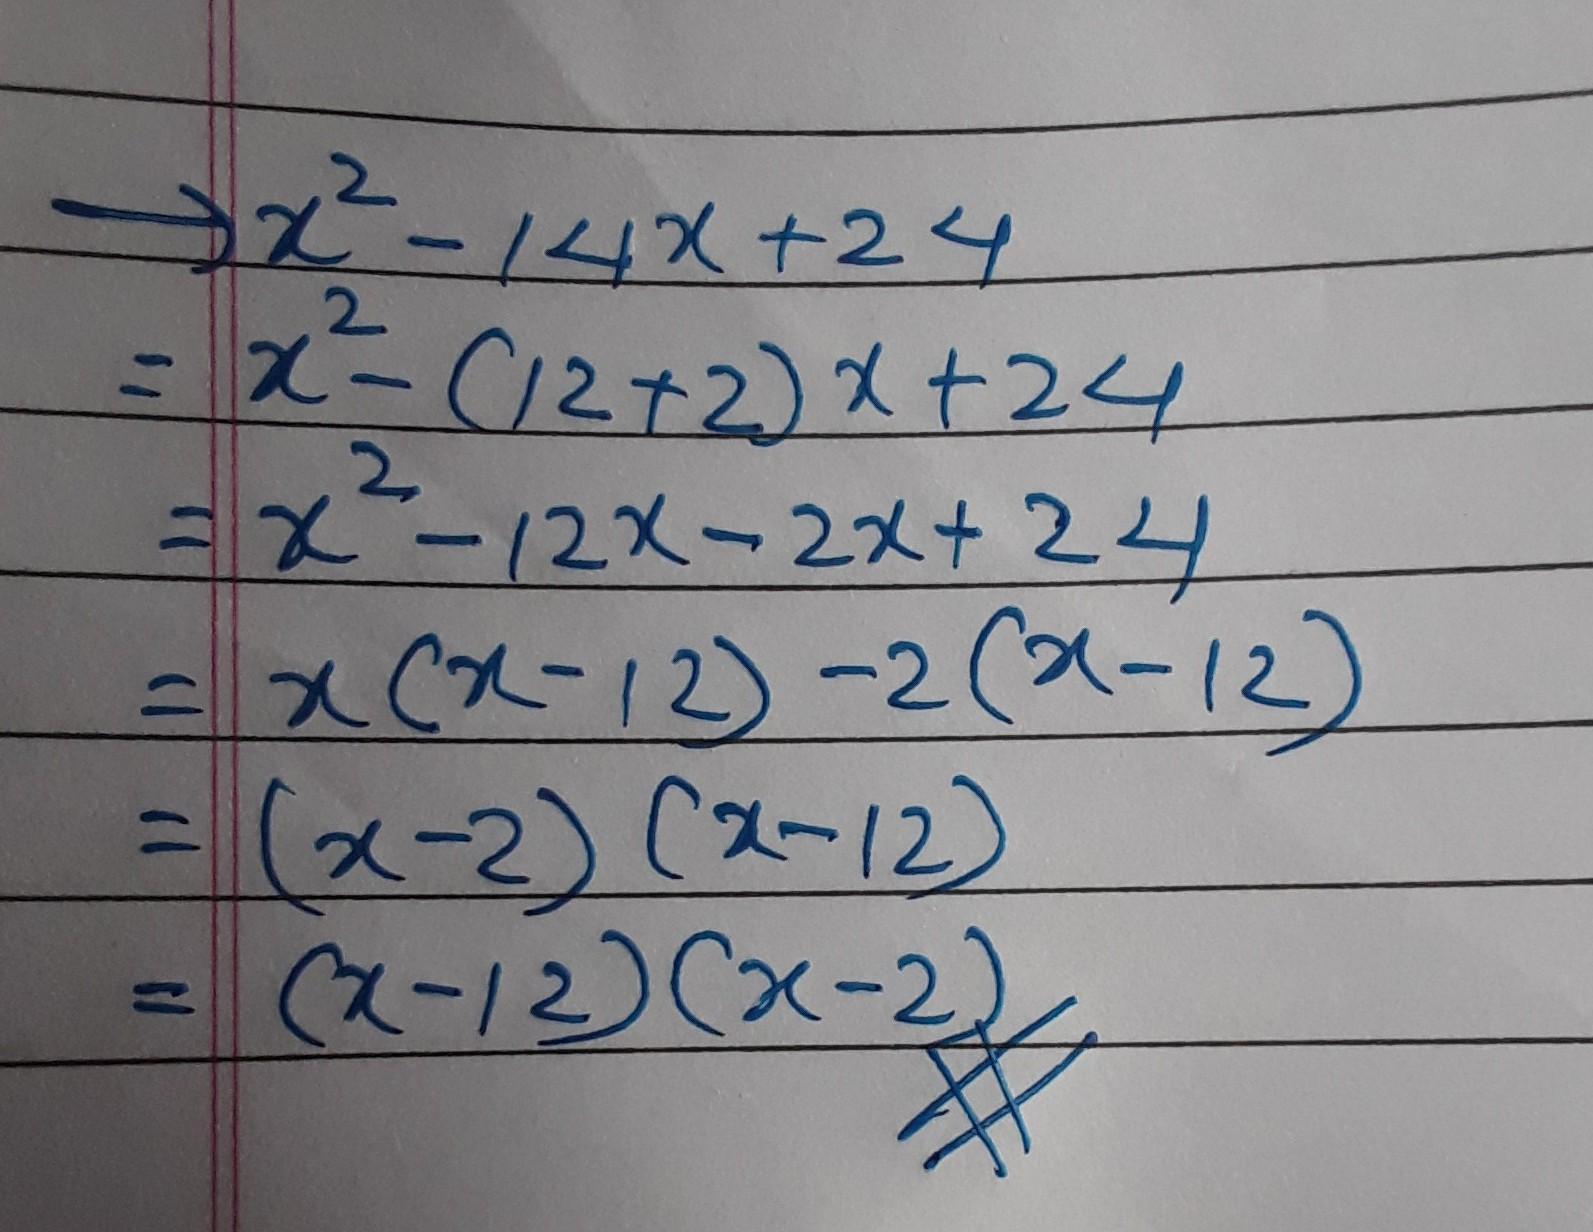 → x² - 14x + 24
= x² - (12+2)x + 24
= x² - 12x - 2x + 24
= x(x-12) -2(x-12)
= (x-2)(x-12)
= (x-12)(x-2)